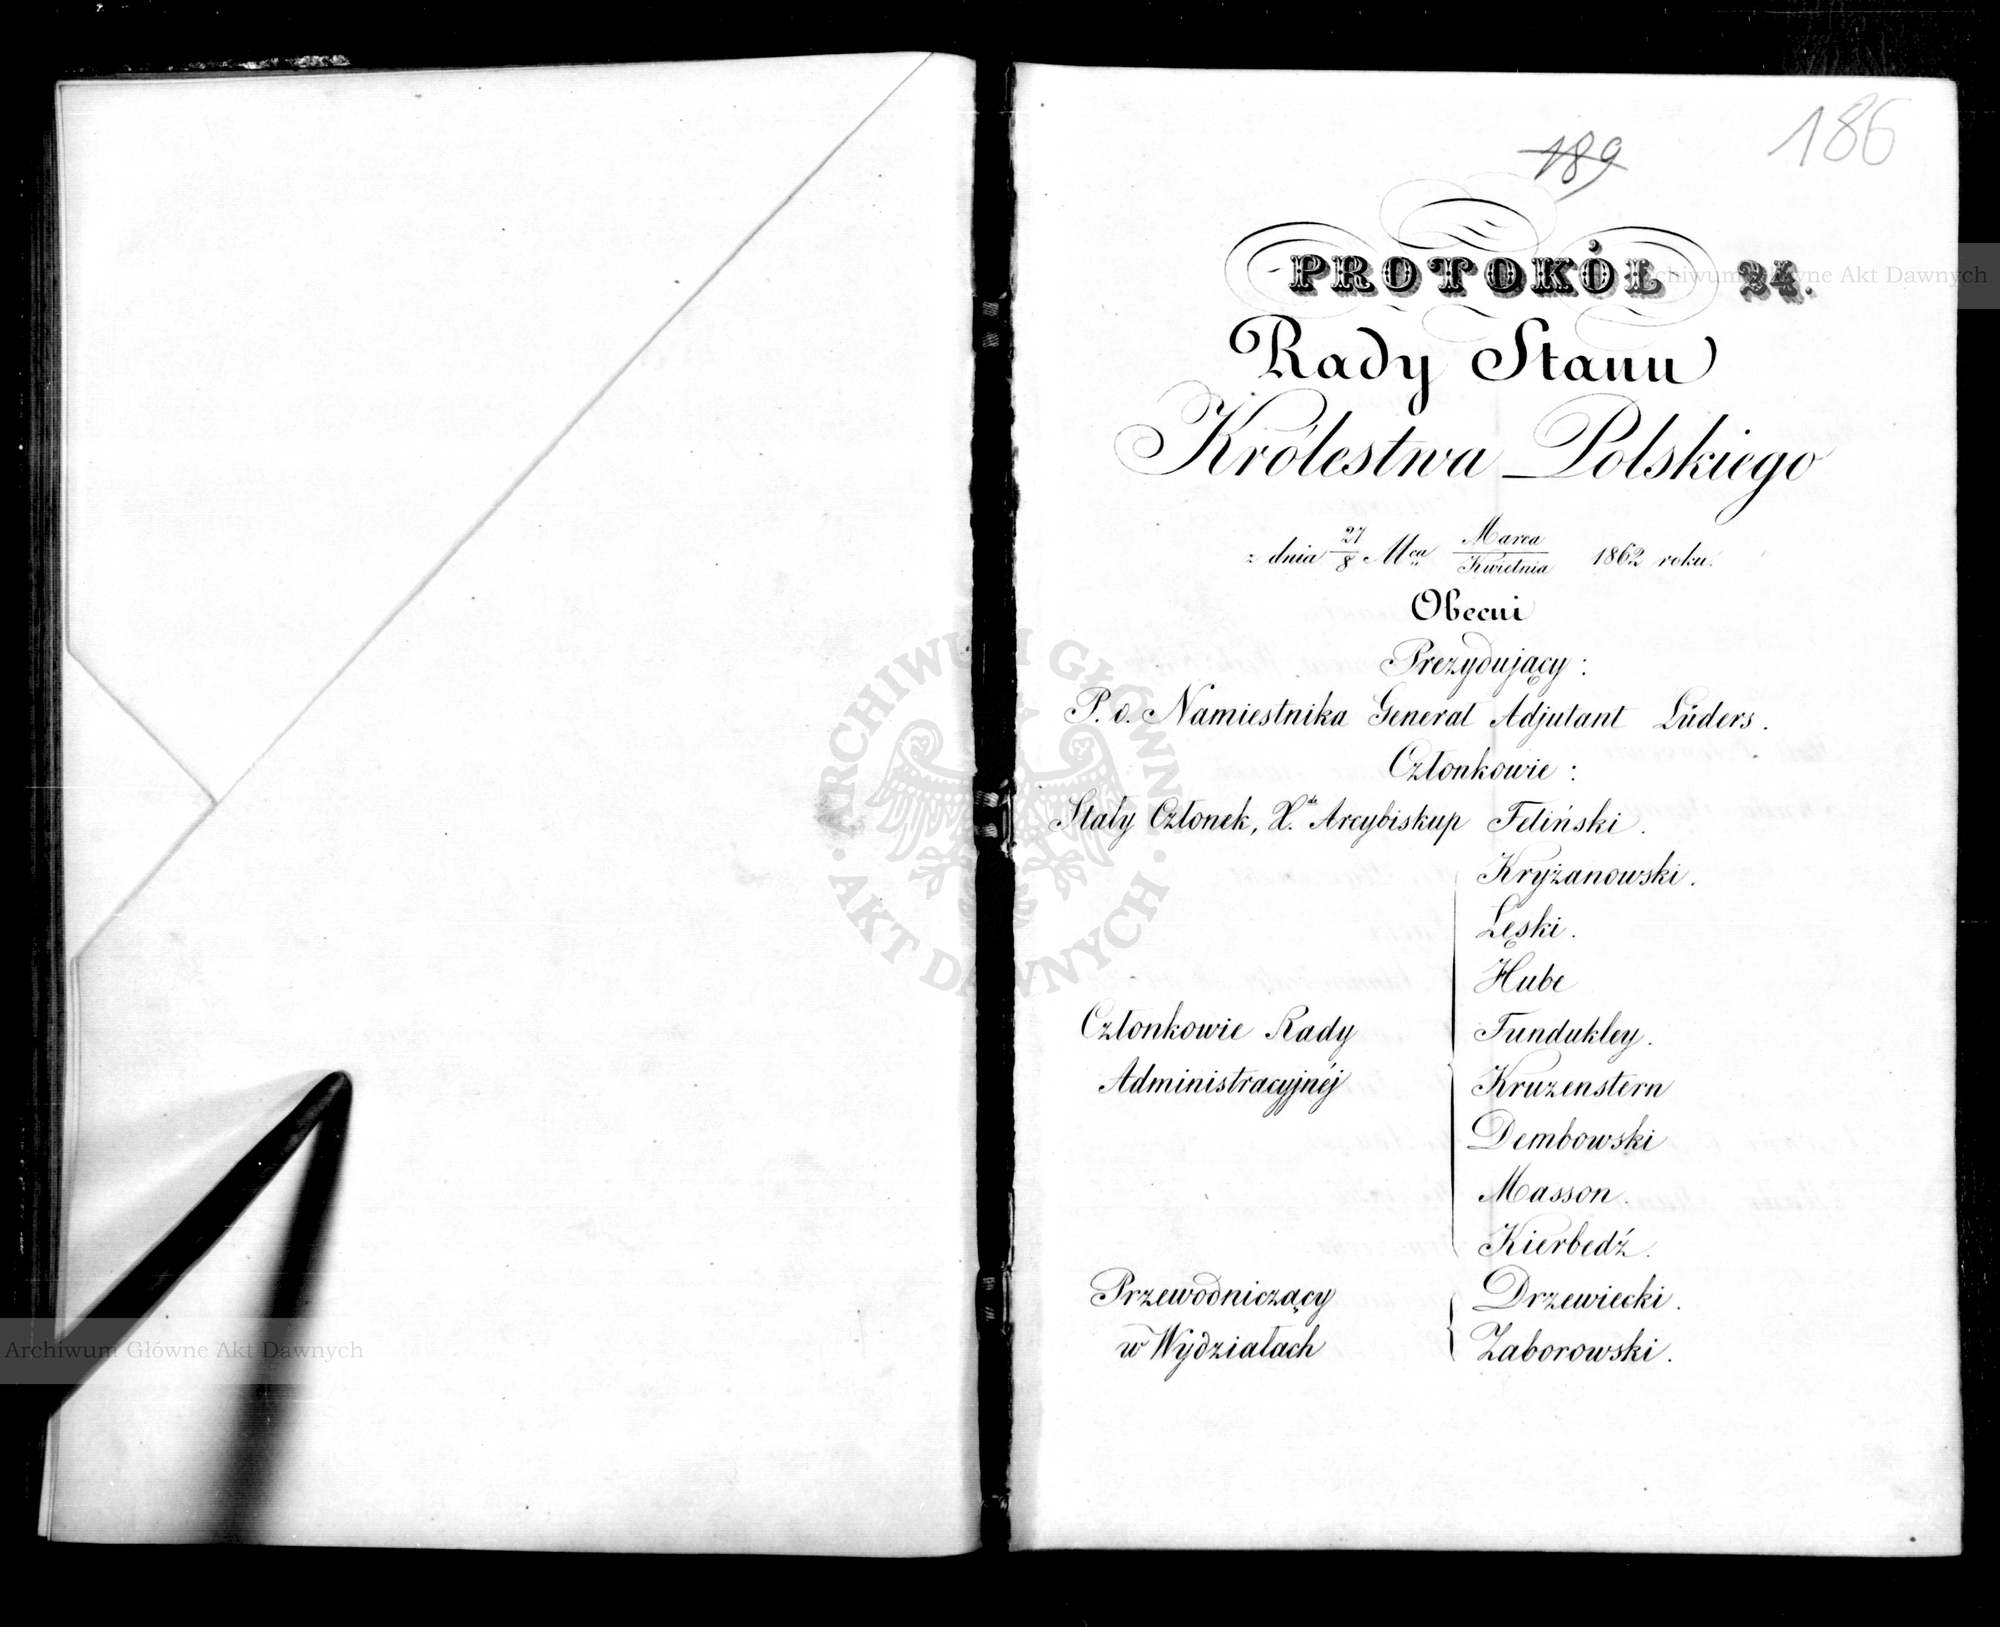 186
189
PROTOKÓŁ 24.
Rady Stanu
Królestwa Polskiego
z dnia 27/8 Mca Marca/Kwietnia 1862 roku.
Obecni
Prezydujący:
P. o. Namiestnika Generał Adjutant Lüders.
Członkowie:
Stały Członek, X. Arcybiskup Feliński.
Kryżanowski.
Łęski.
Hube
Członkowie Rady Fundukley.
Administracyjnéj Kruzenstern
Dembowski
Masson.
Kierbedź.
Przewodniczący Drzewiecki.
w Wydziałach Zaborowski.
Archiwum Główne Akt Dawnych
ARCHIWUM GŁÓWNE AKT DAWNYCH
Archiwum Główne Akt Dawnych